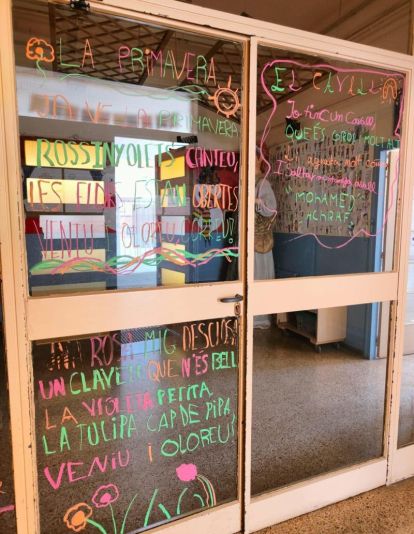 LA PRIMAVERA
JA VE LA PRIMAVERA
ROSSINYOLETS CANTEU,
LES FLORS ESTAN OBERTES
VENIU I OLOREU, OLOREU!
UNA ROSA MIG DESCLOSA
UN CLAVELL QUE N'ÉS BELL
LA VIOLETA PETITA
LA TULIPA CAP DE PIPA
VENIU I OLOREU!
EL CAVALL
Jo tinc un cavall
QUE ÉS GROS I MOLT ALT
M'agrada molt
I
"MOHAMED
ACHRAF"